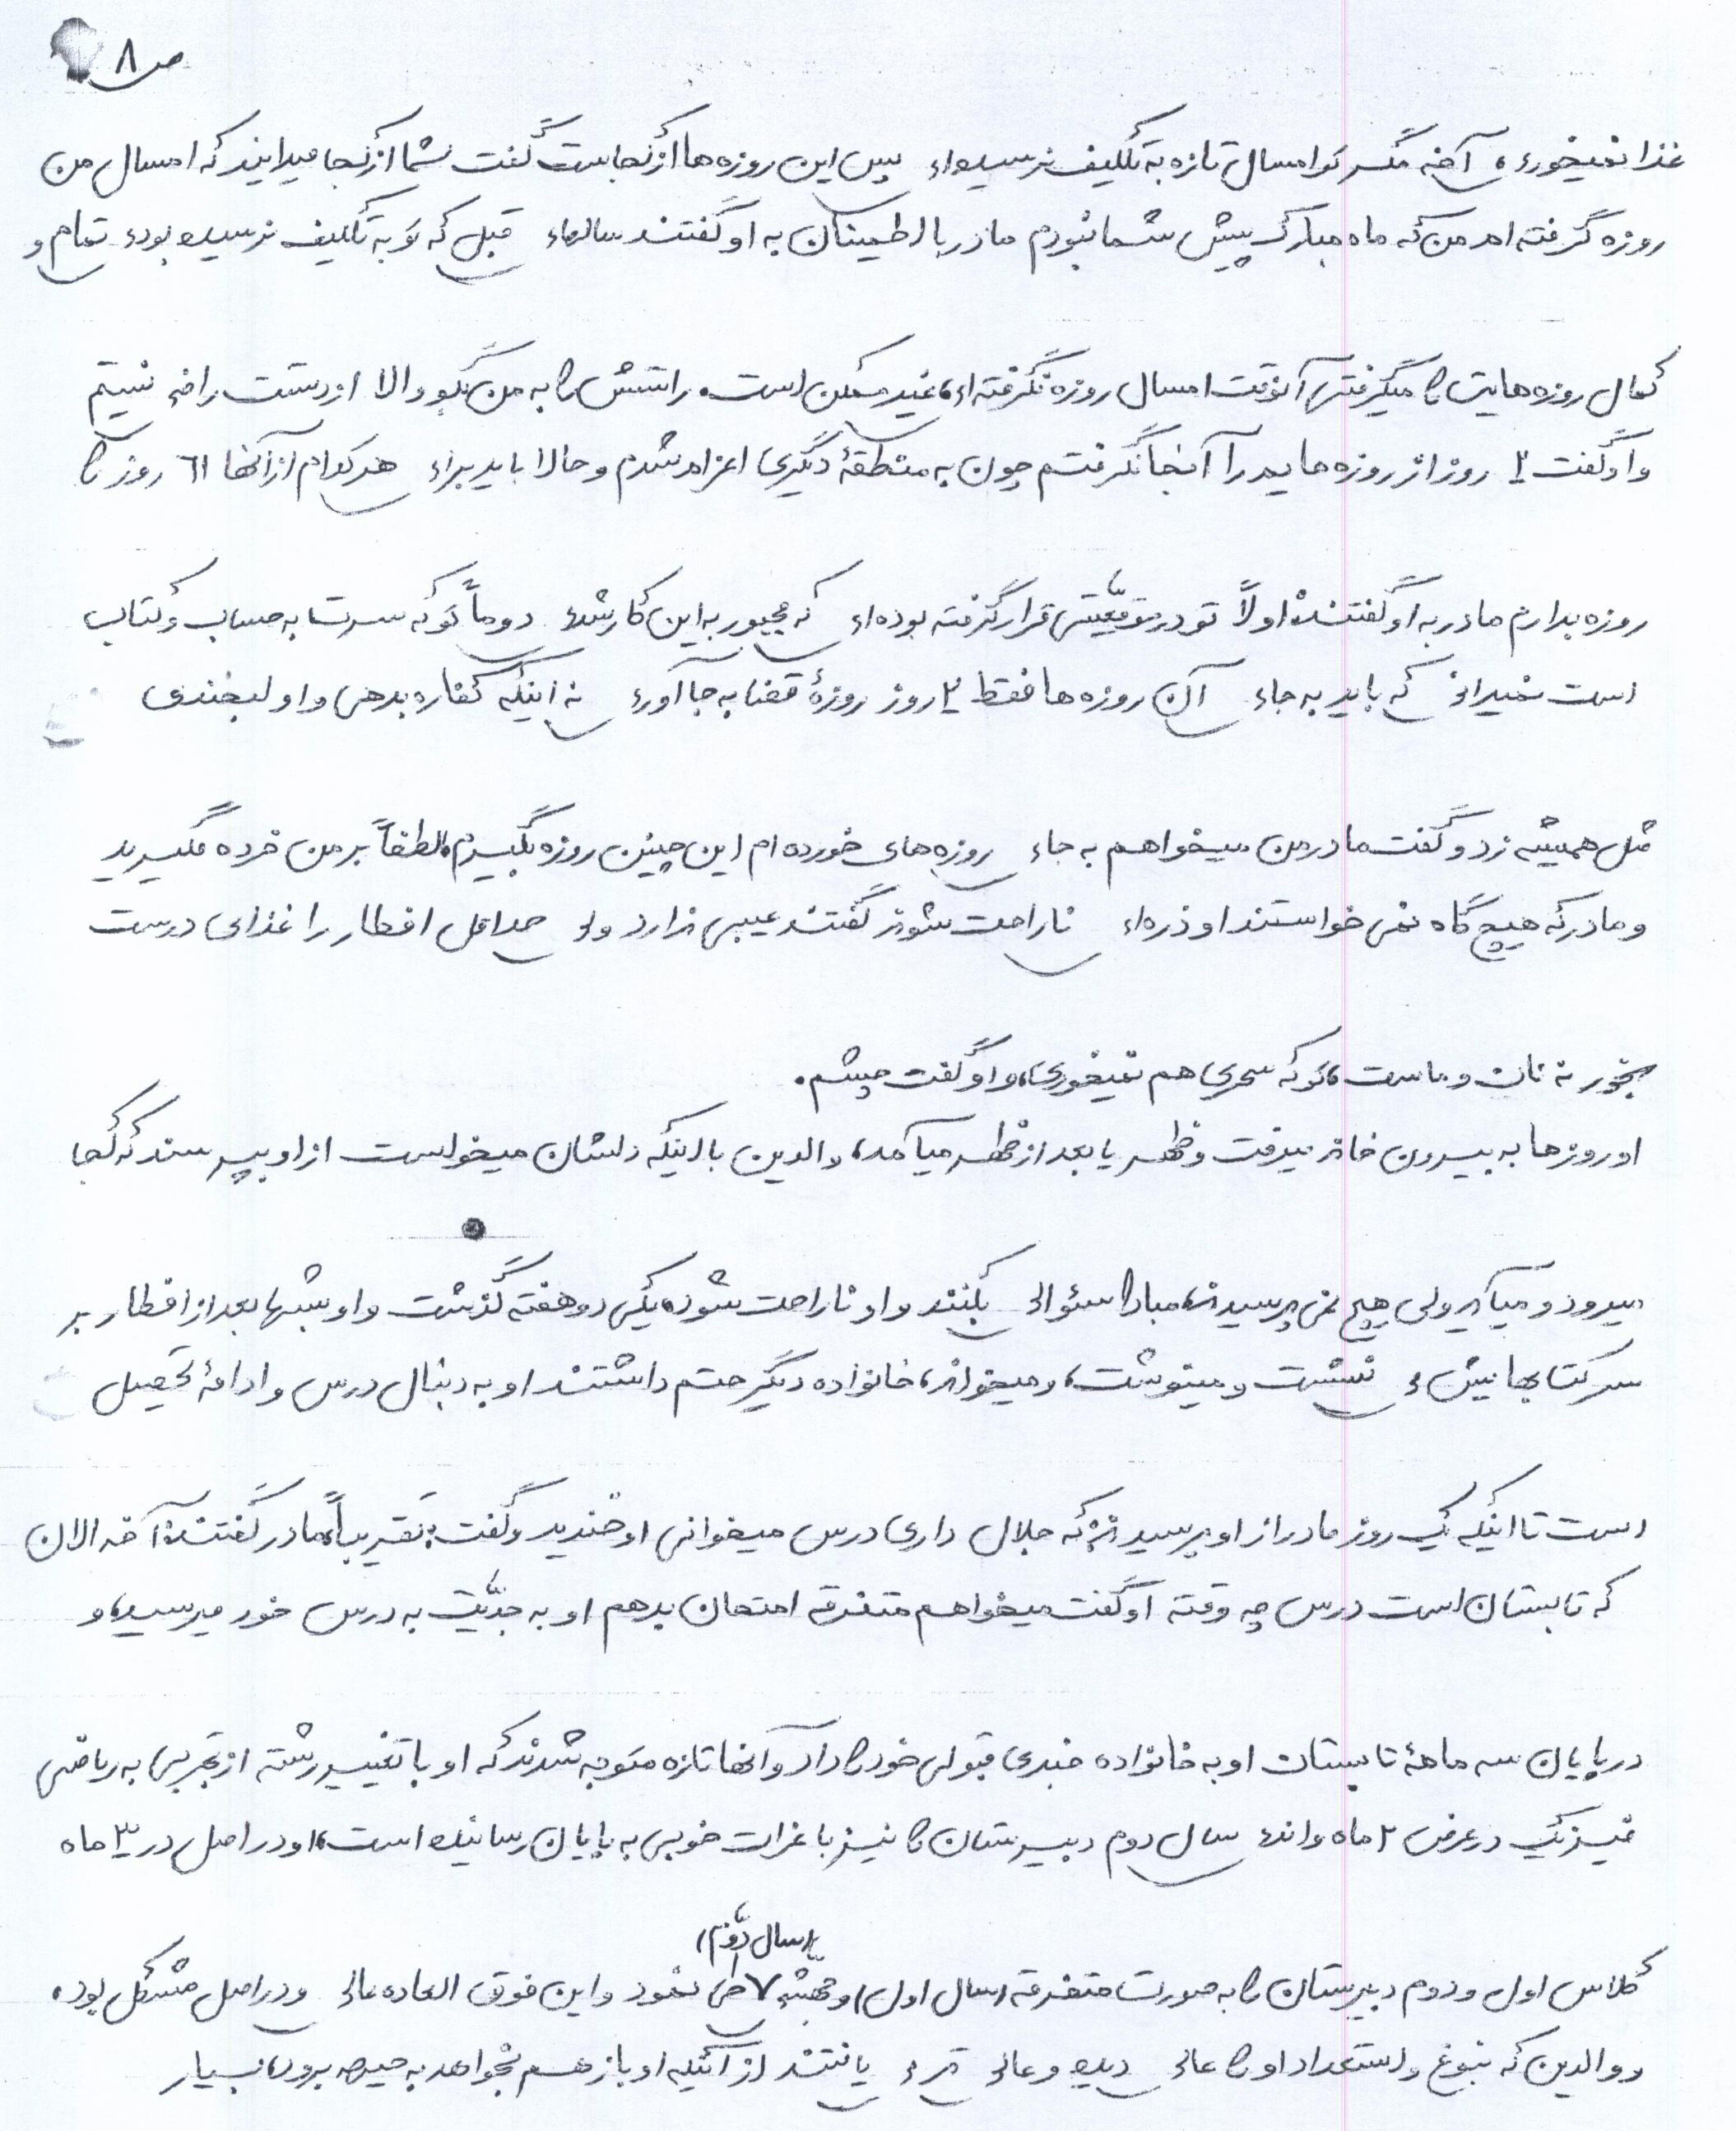 ص ۸
غذا نمیخوری، آخه مگر تو امسال تازه به تکلیف نرسیده‌ای پس این روزه‌ها از کجاست گفت شما از کجا میدانید که امسال من
روزه گرفته‌ام من که ماه مبارک پیش شما نبودم مادر با اطمینان به او گفتند سالهای قبل که تو به تکلیف نرسیده بودی تمام و
کمال روزه‌هایت را میگرفتی آنوقت امسال روزه نگرفته‌ای، غیر ممکن است. راستش را به من بگو والا از دستت راضی نیستم
و او گفت ۲ روز از روزه‌هایم را آنجا نگرفتم چون به منطقهٔ دیگری اعزام شدم و حالا باید برای هر کدام از آنها ۶۱ روز را
روزه بدارم مادر به او گفتند: اولاً تو در موقعیّتی قرار گرفته بوده‌ای که مجبور به این کار شدی دوماً تو که سرت به حساب و کتاب
است نمیدانی که باید به جای آن روزه‌ها فقط ۲ روز روزهٔ قضا به جا آوری نه اینکه کفاره بدهی و او لبخندی
مثل همیشه زد و گفت مادر من میخواهم به جای روزه‌های خورده‌ام این چنین روزه بگیرم، لطفاً بر من خرده مگیرید
و مادر که هیچ گاه نمی خواستند او ذره‌ای ناراحت شود گفتند عیبی ندارد ولی حداقل افطار را غذای درست
بخور نه نان و ماست، تو که سحری هم نمیخوری، و او گفت چشم.
او روزها به بیرون خانه میرفت و ظهر یا بعد از ظهر میآمد، والدین با اینکه دلشان میخواست از او بپرسند که کجا
میرود و میآید ولی هیچ نمی پرسیدند، مبادا سئوالی بکنند و او ناراحت شود، یکی دو هفته گذشت و او شبها بعد از افطار بر
سر کتابهایش می نشست و مینوشت، و میخواند، خانواده دیگر حتم داشتند او به دنبال درس و ادامهٔ تحصیل
است تا اینکه یک روز مادر از او پرسیدند: که جلال داری درس میخوانی او خندید و گفت: تقریباً، مادر گفتند: آخه الان
که تابستان است درس چه وقته او گفت میخواهم متفرقه امتحان بدهم او به جدیّت به درس خود میرسید، و
در پایان سه ماههٔ تابستان او به خانواده خبری قبولی خود را داد و آنها تازه متوجه شدند که او با تغییر رشته از تجربی به ریاضی
فیزیک در عرض ۲ ماه و اندی سال دوم دبیرستان را نیز با نمرات خوبی به پایان رسانیده است، او در اصل در ۳ ماه
(سال دوّم)
کلاس اول و دوم دبیرستان را به صورت متفرقه (سال اول) و جهشی ۷ طی نمود و این فوق العاده عالی و در اصل مشکل بود.
و والدین که نبوغ و استعداد او را عالی دیده و عالی تر می یافتند از آنکه او باز هم بخواهد به جبهه برود، بسیار